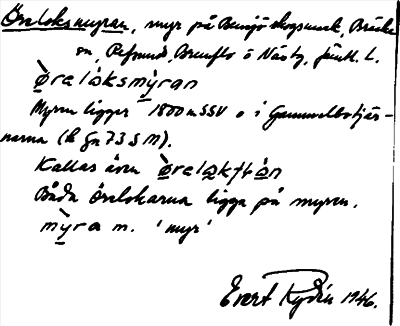 Örloksmyran, myr på Bensjö skogsmark, Bräcke
sn, Refsunds, Brunflo o Näsby, Jämtl. L.
Øreloksmyran
Myren ligger 1800 m SSV o i Gammelbotjär-
narna (h fn 73 S M).
Kallas även Øreloktt n
Båda örelokarna ligga på myren.
myra m. 'myr'
Evert Rydén 1946.